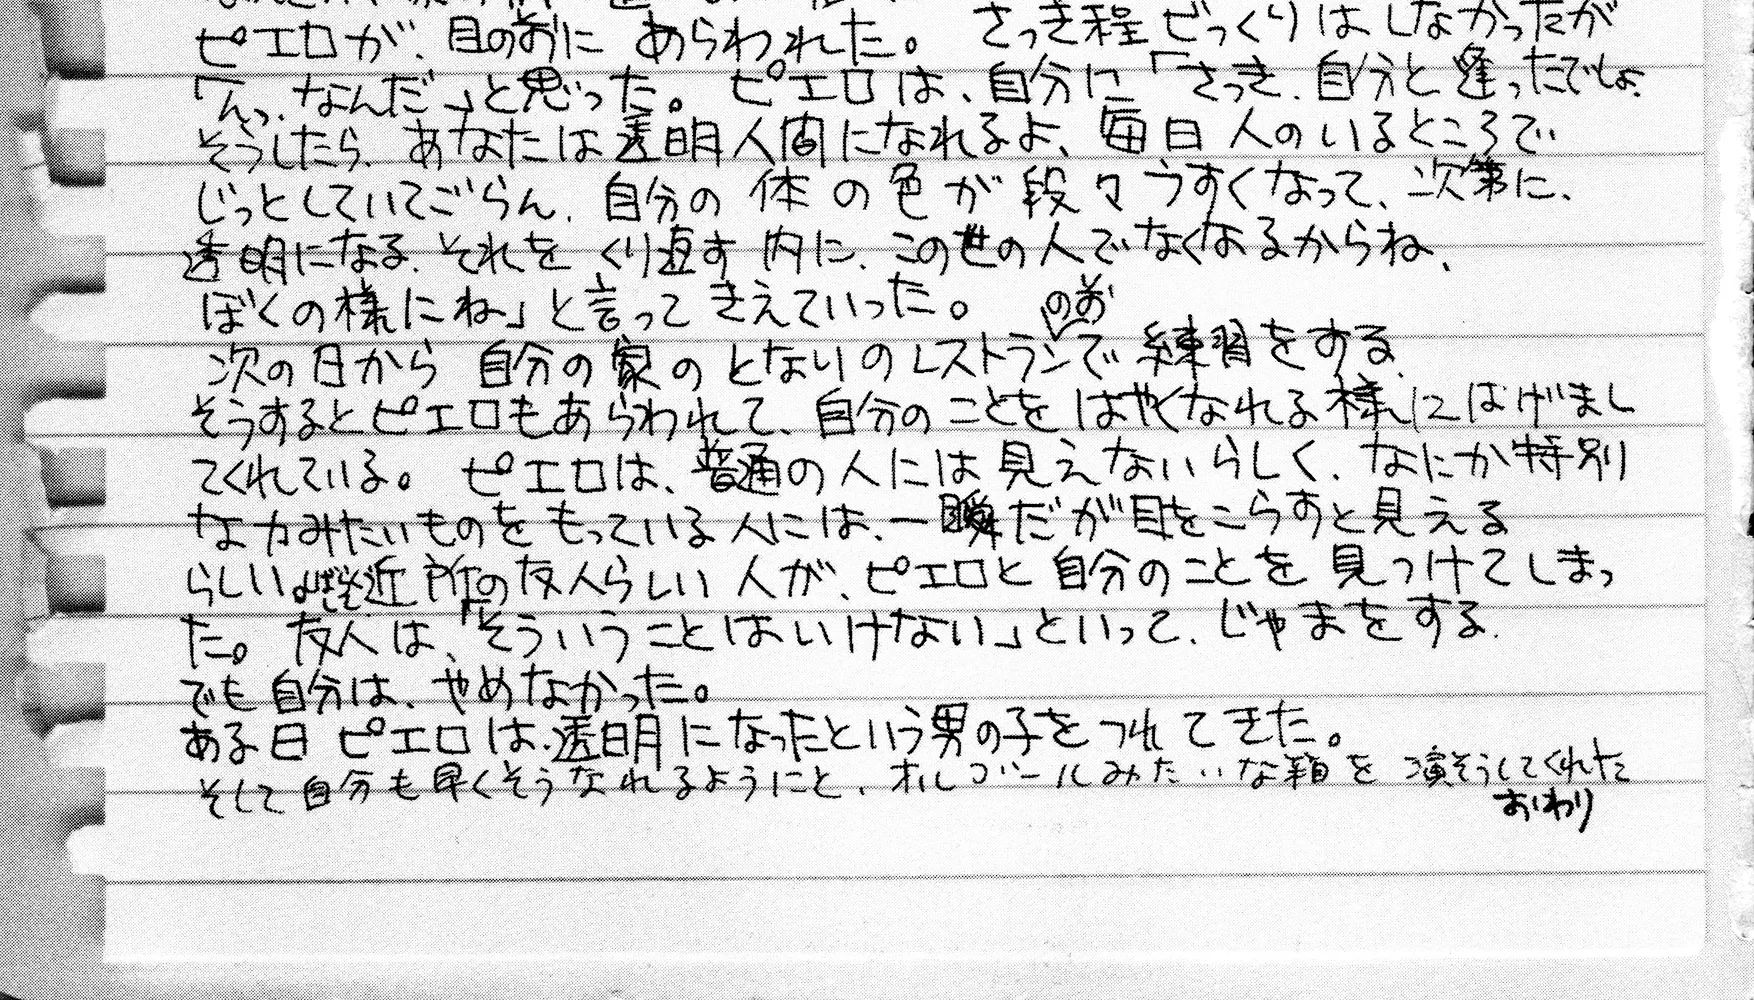 ピエロが、目のおに あらわれた。 さっき程 びっくりはしなかったが
「んっ、なんだ」と思った。 ピエロは、自分に「さっき、自分と逢ったでしょ、
そうしたら、あなたは透明人間になれるよ、毎日人のいるところで
じっとしていてごらん、自分の体の色が段々うすくなって、次第に、
透明になる、それを くり返す内に、この世の人でなくなるからね、
ぼくの様にね」と言って きえていった。
のお
次の日から 自分の家の となりのレストランで 練習をする、
そうするとピエロもあらわれて、自分のことを はやくなれる様にはげまし
てくれている。 ピエロは、普通の人には見えないらしく、なにか特別
な力みたいものをもっている人には、一瞬だが目をこらすと見える
らしい。近所の友人らしい人が、ピエロと自分のことを見つけてしまっ
た。友人は、「そういうことはいけない」といって、じゃまをする、
でも自分は、やめなかった。
ある日 ピエロは、透明になったという男の子をつれてきた。
そして自分も早くそうなれるようにと、オルゴールみたいな箱を 演そうしてくれた
おわり